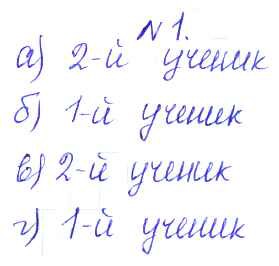 N 1.
а) 2-й ученик
б) 1-й ученик
в) 2-й ученик
г) 1-й ученик